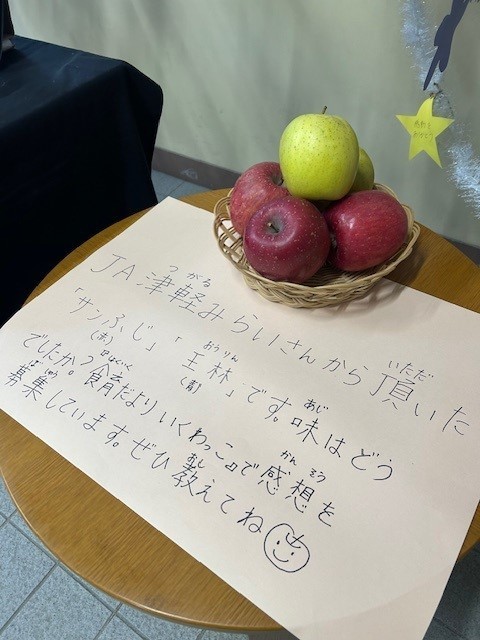 JA津軽みらいさんから頂いた
つがる
いただ
「サンふじ」「王林」です。味はどう
(赤)
おうりん
(青)
あじ
でしたか？食育だよりいくわっこ♪で感想を
しょくいく
かんそう
募集しています。ぜひ教えてね
ぼしゅう
おし